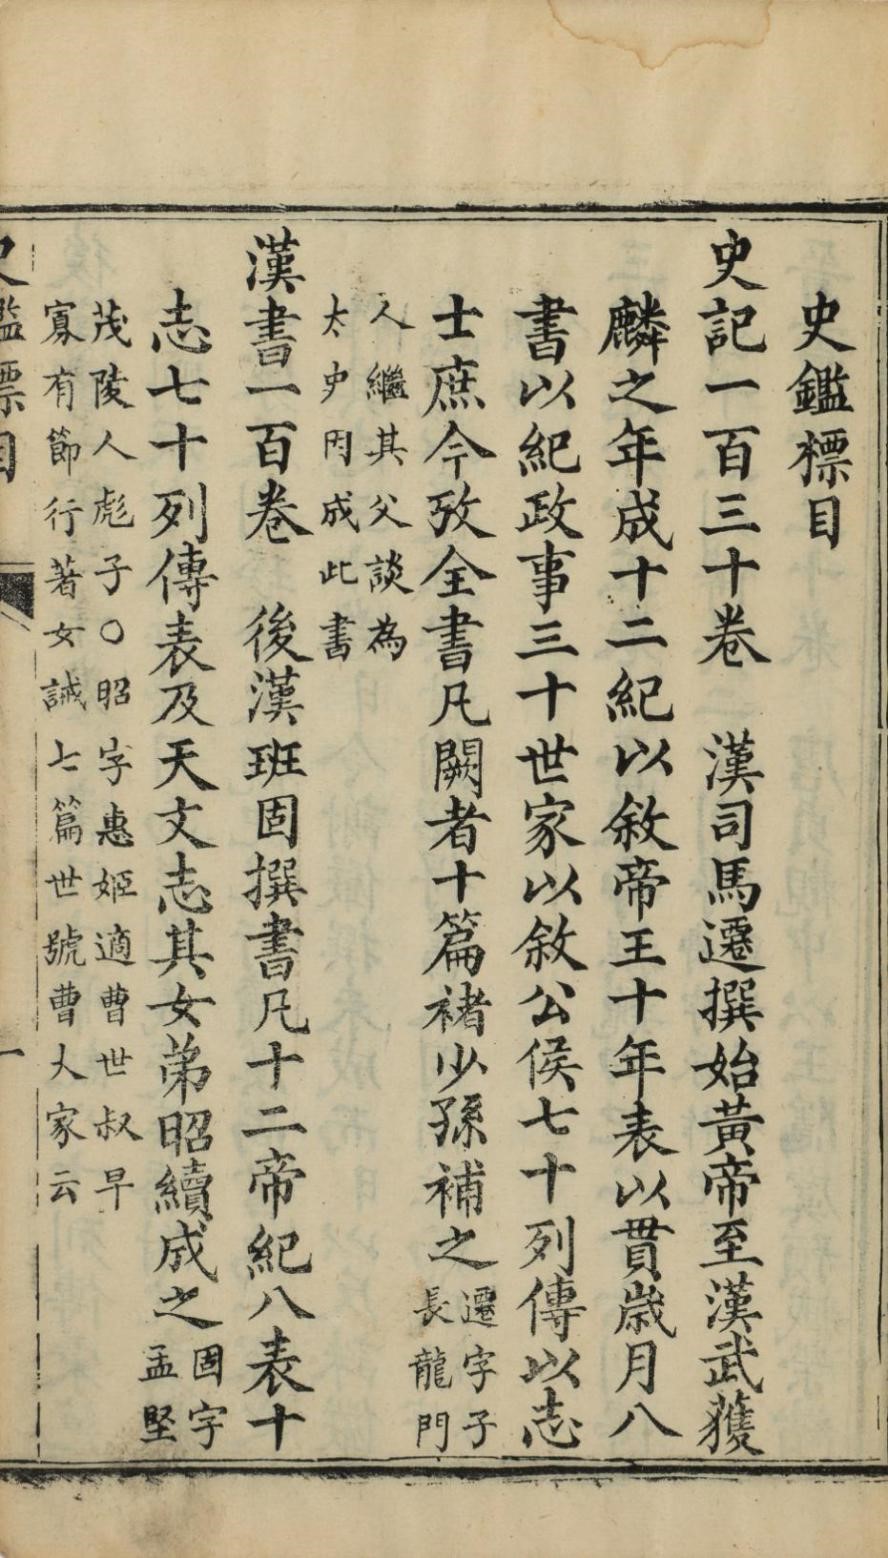 史鑑標目
史記一百三十卷　漢司馬遷撰始黃帝至漢武獲
麟之年成十二紀以敘帝王十年表以貫歲月八
書以紀政事三十世家以敘公侯七十列傳以志
士庶今攷全書凡闕者十篇褚少孫補之遷字子
長龍門
人繼其父談為
太史因成此書
漢書一百卷　後漢班固撰書凡十二帝紀八表十
志七十列傳表及天文志其女弟昭續成之固字
孟堅
茂陵人彪子○昭字惠姬適曹世叔早
寡有節行著女誡七篇世號曹大家云
史鑑標目
一